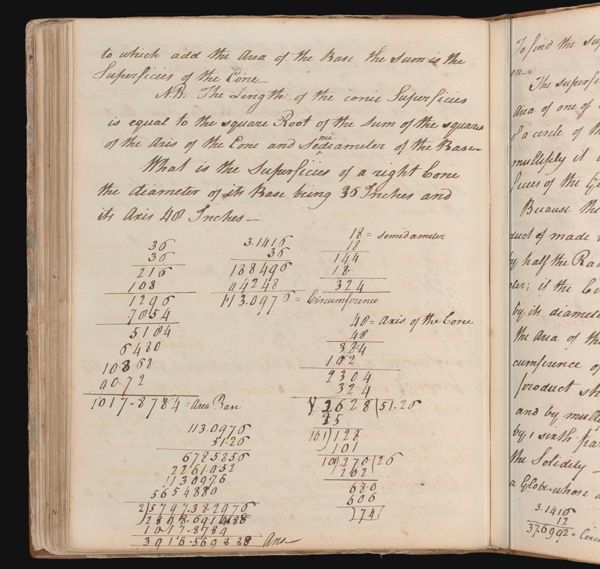 to which add the Area of the Base the Sum is the
Superficies of the Cone
NB. The Length of the conic Superficies
is equal to the square Root of the Sum of the squares
of the Axis of the Cone and Semidiameter of the Base
What is the Superficies of a right Cone
the diameter of its Base being 36 Inches and
its Axis 48 Inches
36
36
216
108
1296
7854
5184
6480
10368
9072
1017.8784 = Area Base
3.1416
36
188496
94248
113.0976 = Circumference
18 = semidiameter
18
144
18
324
48 = Axis of the Cone
48
384
192
2304
324
2628 (51.26
25
101) 128
101
270 (26
202
680
606
74
113.0976
51.26
6785856
2261952
1130976
5654880
2) 5797.382976
1017.8784
Ans
To find the
The superfi
Area of one of
of a circle of th
multiply it
Because the
duct of made
by half the Ra
by its diamet
the Area of the
cumference of
product sh
and by mult
by 1 sixth par
the Solidity
a Globe whose
3.1416
12
37.6992 = Circu